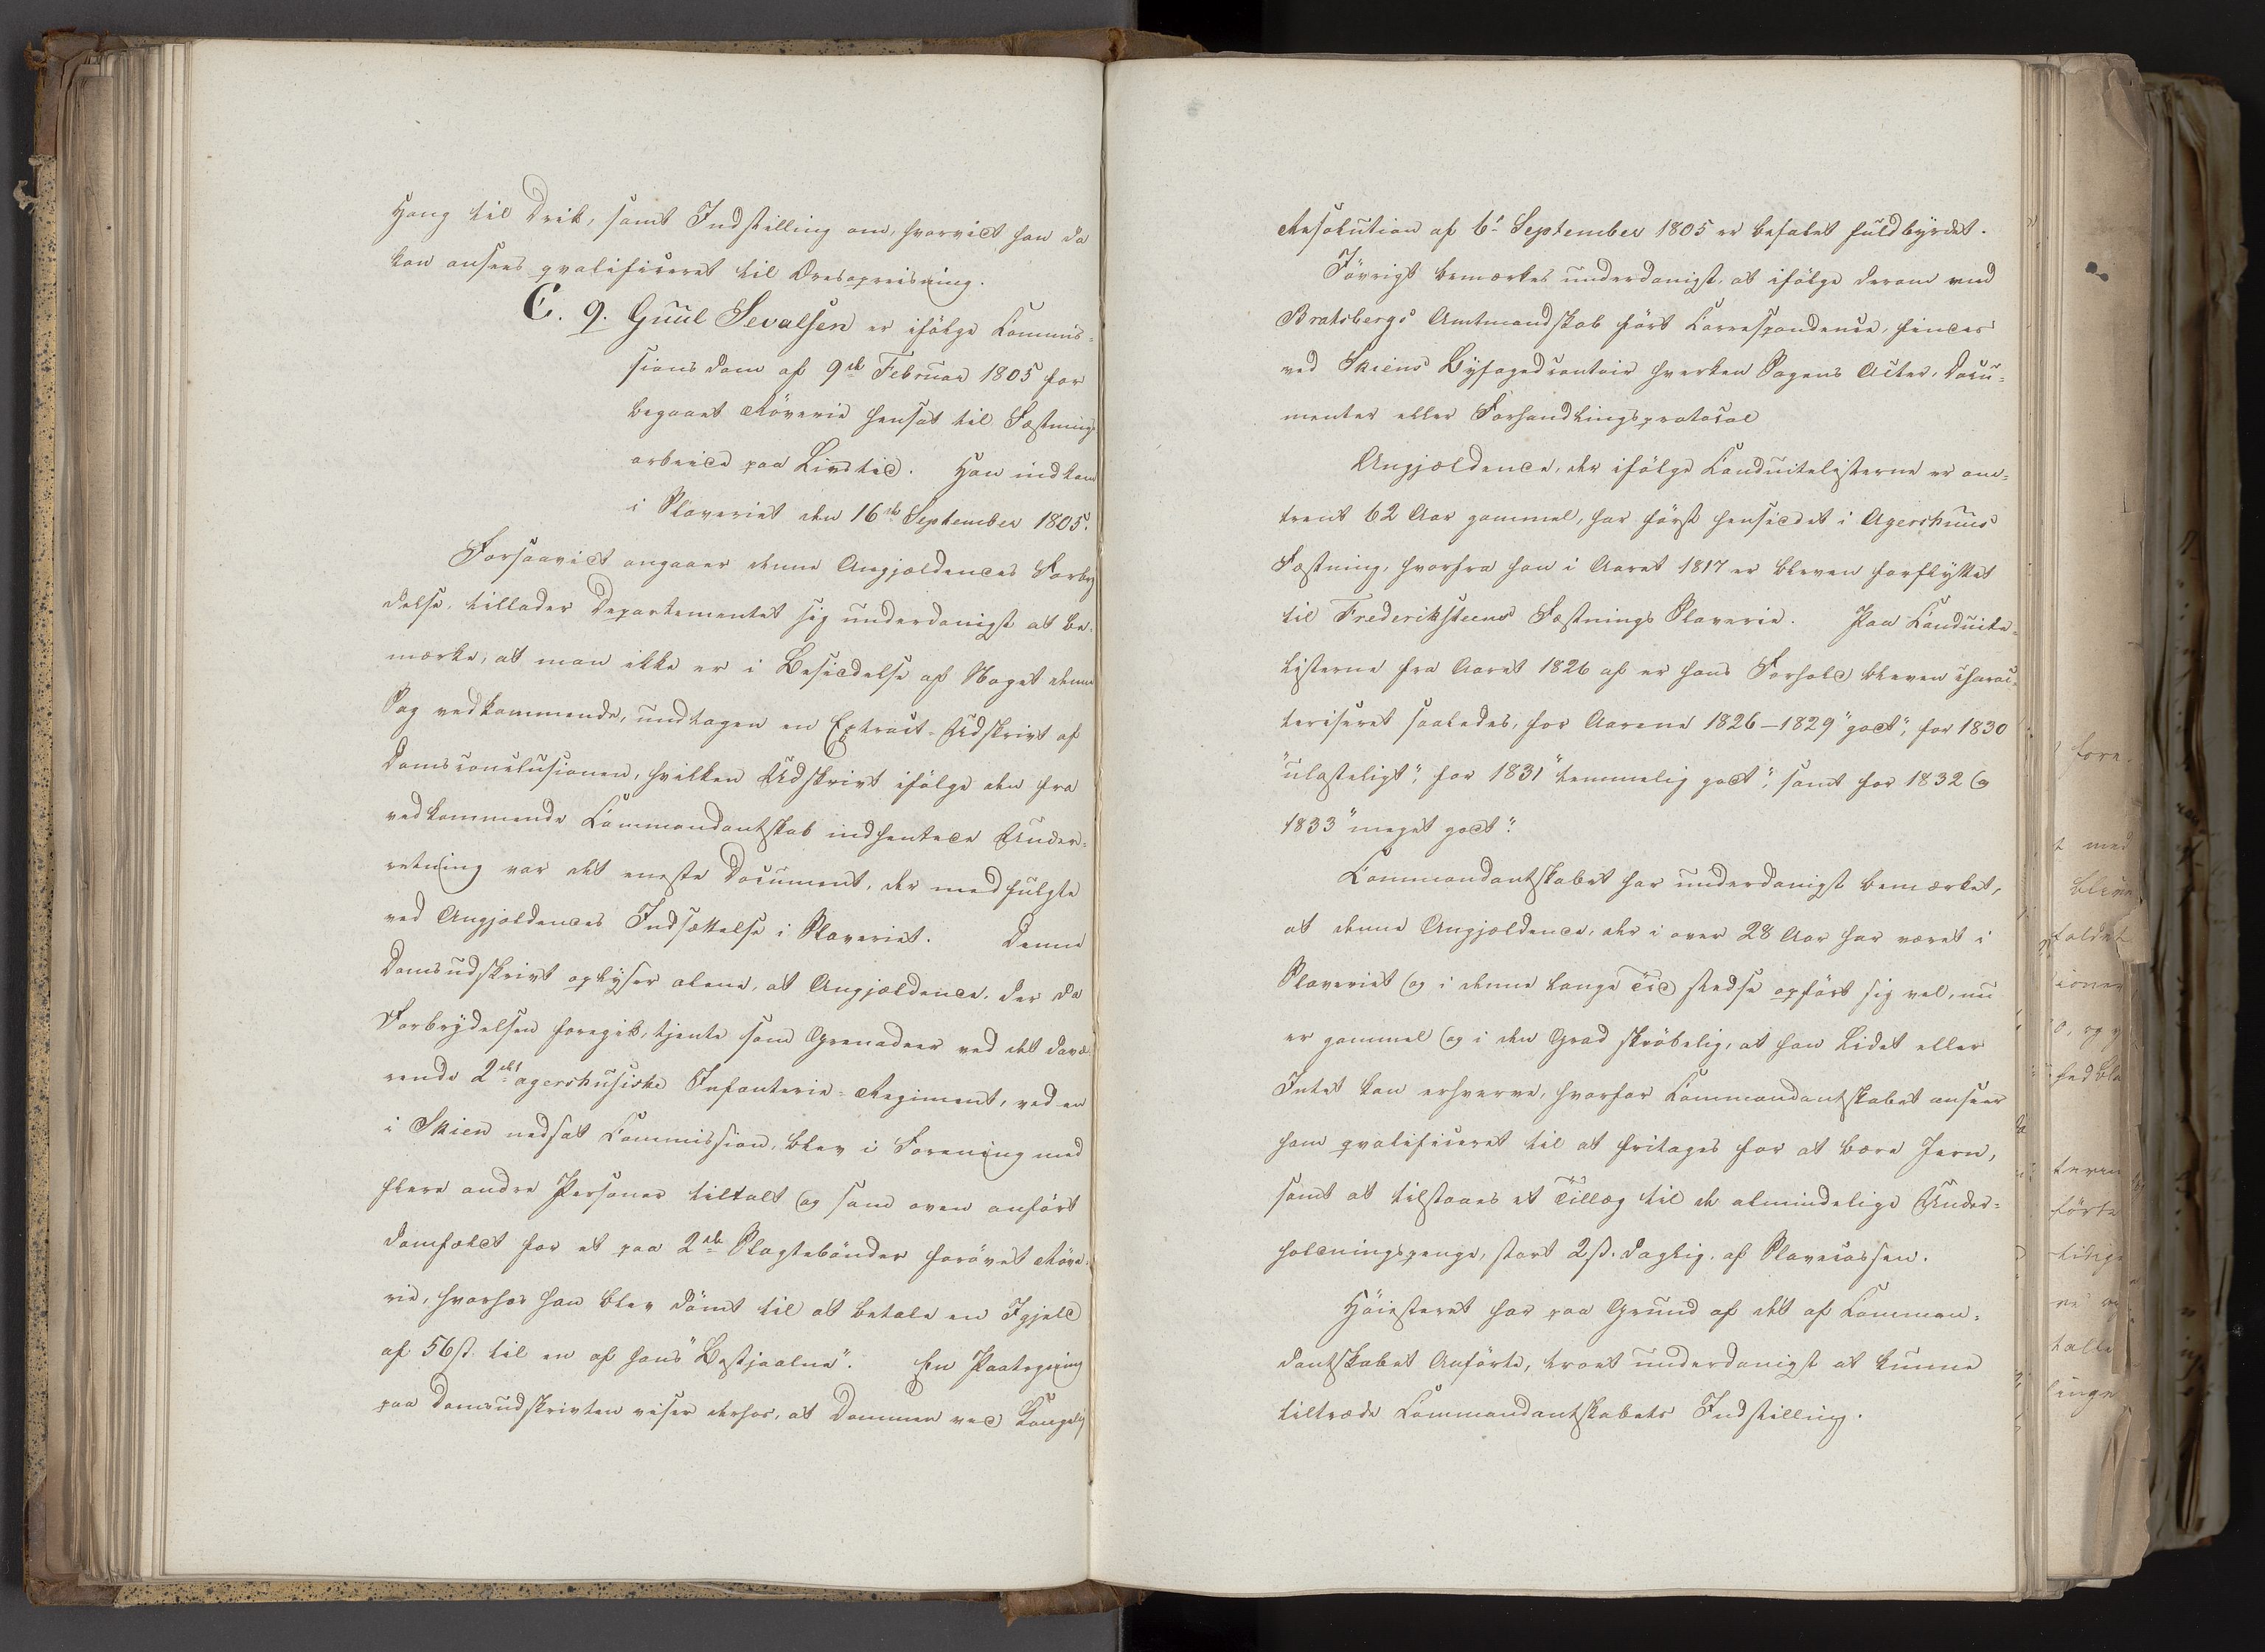 Hang til Drik, samt Indstilling om, hvorvidt han da
kan ansees qvalificeret til Oresopreisning.
C. 9. Guul Sevalsen er ifölge Commis-
sionsdom af 9de Februar 1805 for
begaaet Röverie hensat til Fæstnings
arbeide paa Livstid. Han indkom
i Slaveriet den 16de September 1805.
Forsaavidt angaaer denne Angjældendes Forbry
delse, tillader Departementet sig underdanigst at be-
mærke, at man ikke er i Besiddelse af Noget denne
Sag vedkommende, undtagen en Extract-Udskrivt af
Domsconclusionen, hvilken Udskrivt ifölge den fra
vedkommende Commandantskab indhentede Under-
retning var det eneste Document, der medfulgte
ved Angjældendes Indsættelse i Slaveriet. Denne
Domsudskrivt oplyser alene, at Angjældende, der da
Forbrydelsen foregik, tjente som Grenadeer ved det davæ
rende 2det agershusiske Infanterie-Regiment, ved en
i Skien nedsat Commission, blev i Forening med
flere andre Personer tiltalt og som oven anfört
domfældt for et paa 2de Slagtebönder forövet Röve-
rie, hvorhos han blev dömt til at betale en Igjeld
af 56 s til en af hans "Bestjaalne". En Paategning
paa Domsudskrivten viser derhos, at Dommen ved Kongelig
Resolution af 6te September 1805 er befalet fuldbyrdet.
Iövrigt bemærkes underdanigst, at ifölge derom med
Bratsbergs Amtmandskab fört Correspondence, findes
ved Skiens Byfogedcontoir hverken Sagens Acter, Docu-
menter eller Forhandlingsprotocol
Angjældende, der ifölge Conduitelisterne er om-
trent 62 Aar gammel, har först hensiddet i Agershuus
Fæstning, hvorfra han i Aaret 1817 er bleven forflyttet
til Frederiksteens Fæstnings Slaverie. Paa Conduite-
listerne fra Aaret 1826 af er hans Forhold bleven charac-
teriseret saaledes, for Aarene 1826-1829 "godt", for 1830
"ulasteligt", for 1831 "temmelig godt", samt for 1832 og
1833 "meget godt".
Commandantskabet har underdanigst bemærket,
at denne Angjældende, der i over 28 Aar har været i
Slaveriet og i denne lange Tid stedse opfört sig vel, nu
er gammel og i den Grad skröbelig, at han Lidet eller
Intet kan erhverve, hvorfor Commandantskabet anseer
ham qvalificeret til at fritages for at bære Jern,
samt at tilstaaes et Tillæg til de almindelige Under-
holdningspenge, stort 2 s. daglig, af Slavecassen.
Höiesteret har paa Grund af det af Comman-
dantskabet Anförte, troet underdanigst at kunne
tiltræde Commandantskabets Indstilling.